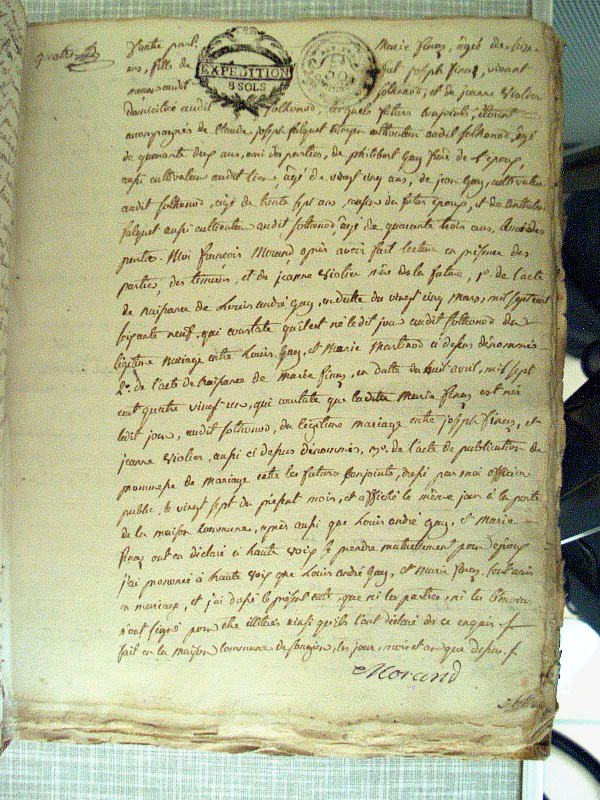 D'autre part Marie Finaz, âgée de
ans, fille de Joseph Finaz, vivant
audit Solhonod, et de jeanne Violier
domiciliée audit Solhonod, lesquels futurs conjoints, étoient
EXPEDITION
8 SOLS
accompagnés de Claude joseph falquet cultivateur audit solhonod, âgé
de quarante deux ans, ami des parties, de philibert Gay frère de l'epoux,
aussi cultivateur audit lieu âgé de vingt cinq ans, de jean Gay, cultivateur
audit solhonod, agé de trente sept ans, du futur Epoux, et de
falquet aussi cultivateur audit solhonod âgé de quarante trois ans, Amis des
parties. Moi francois Morand après avoir fait lecture en présence des
parties, des temoins, et de jeanne Violier mère de la future, 1°. de l'acte
de naissance de Louis andré Gay, en datte du vingt cinq mars, mil sept cent
soixante neuf, qui constate qu'il est né ledit jour audit solhonod du
légitime mariage entre Louis Gay, et Marie Martinod ci dessus dénommés
2°. de l'acte de naissance de Marie Finaz, en datte du huit avril, mil sept
cent quatre vingt un, qui constate que ladite Marie Finaz est née
ledit jour, audit solhonod, du légitime mariage entre joseph Finaz, et
jeanne Violier, aussi ci dessus dénommés, 3°. de l'acte de publication de
promesse de mariage entre les futurs conjoints, dressé par moi officier
public, le vingt sept du présent mois, et affiché le même jour à la porte
de la maison Commune, après aussi que Louis andré Gay, et Marie
Finaz ont eu déclaré à haute voix se prendre mutuellement pour époux
j'ai prononcé à haute voix que Louis André Gay, et Marie Finaz, sont unis
en mariage, et j'ai dressé le présent acte, que ni les parties, ni les témoins
n'ont signé pour etre illitérés ainsi qu'ils l'ont déclaré de ce enquis.
fait en la maison commune de songieu, les jour, mois et an que dessus.
Morand